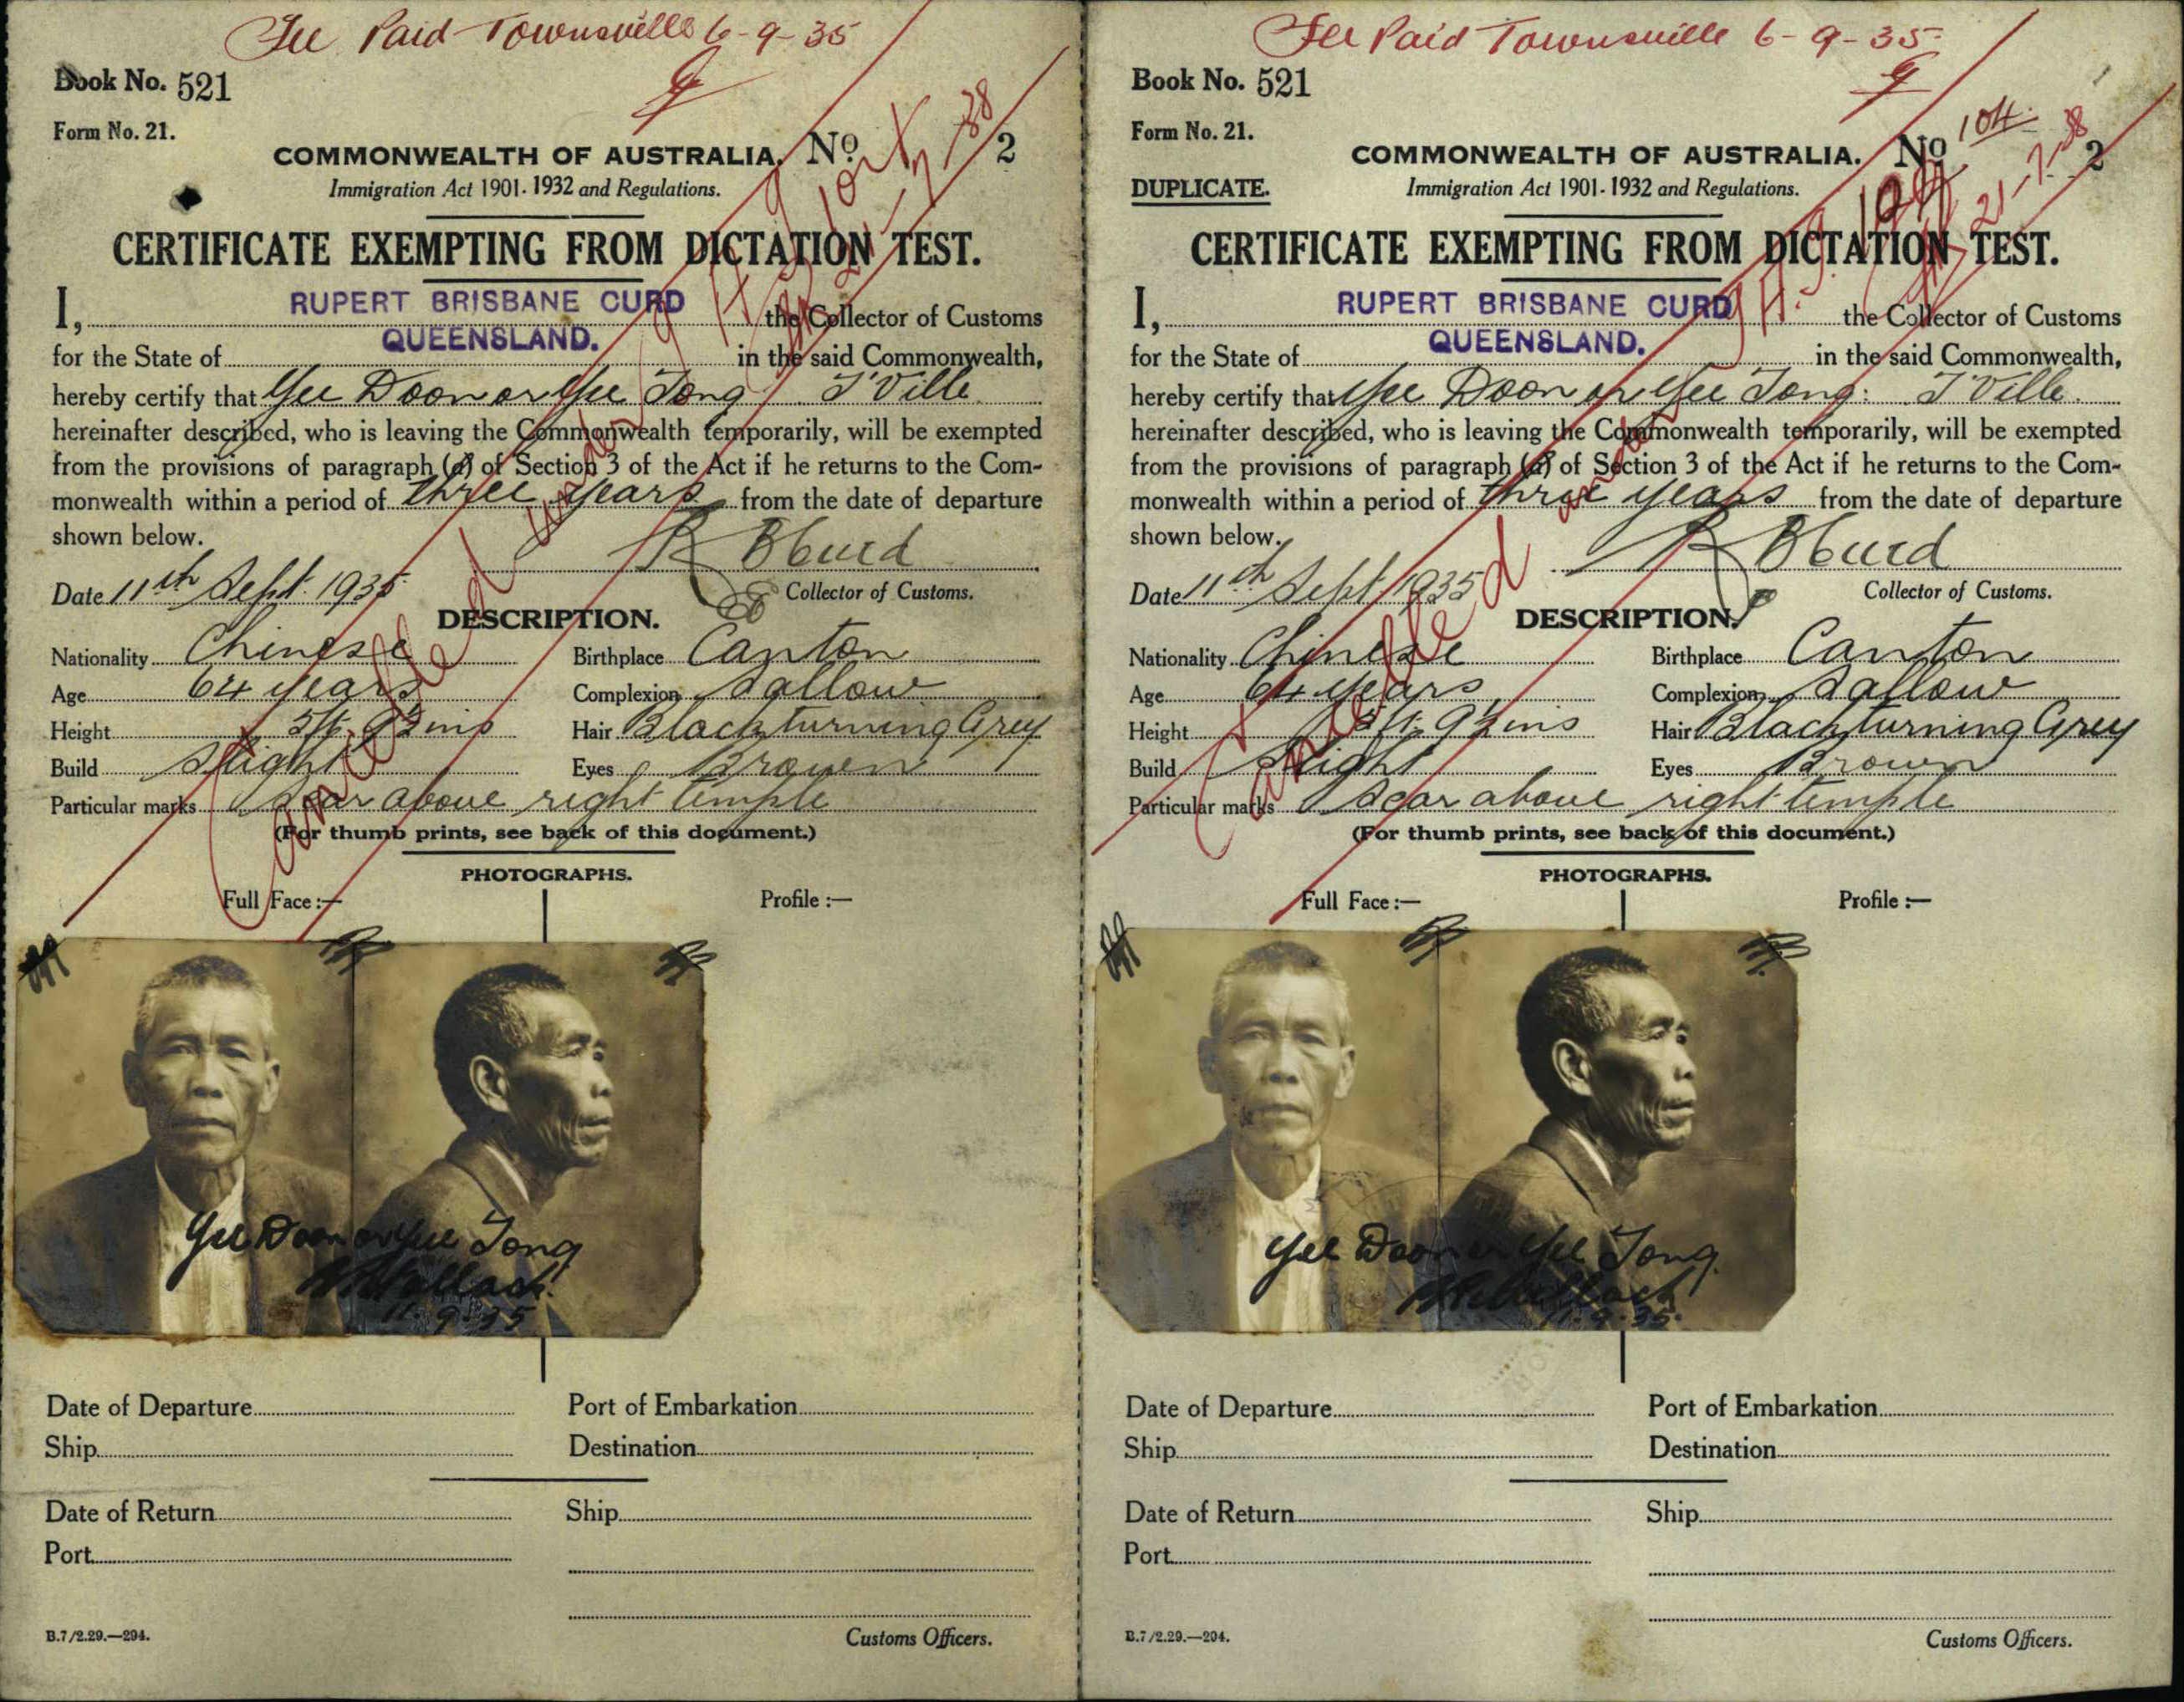 Fee Paid Townsville 6-9-35
Book No. 521
Form No. 21.
COMMONWEALTH OF AUSTRALIA. No. 2
Immigration Act 1901-1932 and Regulations.
CERTIFICATE EXEMPTING FROM DICTATION TEST.
I, RUPERT BRISBANE CURD the Collector of Customs
for the State of QUEENSLAND. in the said Commonwealth,
hereby certify that Yee Doon or Yee Tong T'Ville.
hereinafter described, who is leaving the Commonwealth temporarily, will be exempted
from the provisions of paragraph (a) of Section 3 of the Act if he returns to the Com-
monwealth within a period of three years from the date of departure
shown below.
R B Curd
Date 11th Sept. 1935 Collector of Customs.
DESCRIPTION.
Nationality Chinese Birthplace Canton
Age 64 years Complexion Sallow
Height 5ft. 9½ins Hair Black turning Grey
Build Slight Eyes Brown
Particular marks Scar above right temple
(For thumb prints, see back of this document.)
Cancelled under
21-7-38
PHOTOGRAPHS.
Full Face:— Profile:—
Yee Doon or Yee Tong
11.9.35
Date of Departure Port of Embarkation
Ship Destination
Date of Return Ship
Port
B.7/2.29.—294. Customs Officers.
Fee Paid Townsville 6-9-35
Book No. 521
Form No. 21.
COMMONWEALTH OF AUSTRALIA. No. 104 2
DUPLICATE. Immigration Act 1901-1932 and Regulations.
CERTIFICATE EXEMPTING FROM DICTATION TEST.
I, RUPERT BRISBANE CURD the Collector of Customs
for the State of QUEENSLAND. in the said Commonwealth,
hereby certify that Yee Doon or Yee Tong: T'Ville.
hereinafter described, who is leaving the Commonwealth temporarily, will be exempted
from the provisions of paragraph (a) of Section 3 of the Act if he returns to the Com-
monwealth within a period of three years from the date of departure
shown below.
R B Curd
Date 11th Sept 1935 Collector of Customs.
DESCRIPTION.
Nationality Chinese Birthplace Canton
Age 64 years Complexion Sallow
Height 5ft. 9½ins Hair Black turning Grey
Build Slight Eyes Brown
Particular marks Scar above right temple
(For thumb prints, see back of this document.)
Cancelled under
21-7-38
PHOTOGRAPHS.
Full Face:— Profile:—
Yee Doon or Yee Tong.
11.9.35.
Date of Departure Port of Embarkation
Ship Destination
Date of Return Ship
Port
B.7/2.29.—294. Customs Officers.